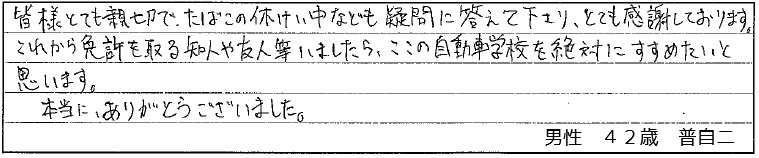 皆様とても親切で、たばこの休けい中なども疑問に答えて下さり、とても感謝しております。
これから免許を取る知人や友人等いましたら、ここの自動車学校を絶対にすすめたいと
思います。
本当に、ありがとうございました。
男性　４２歳　普自二